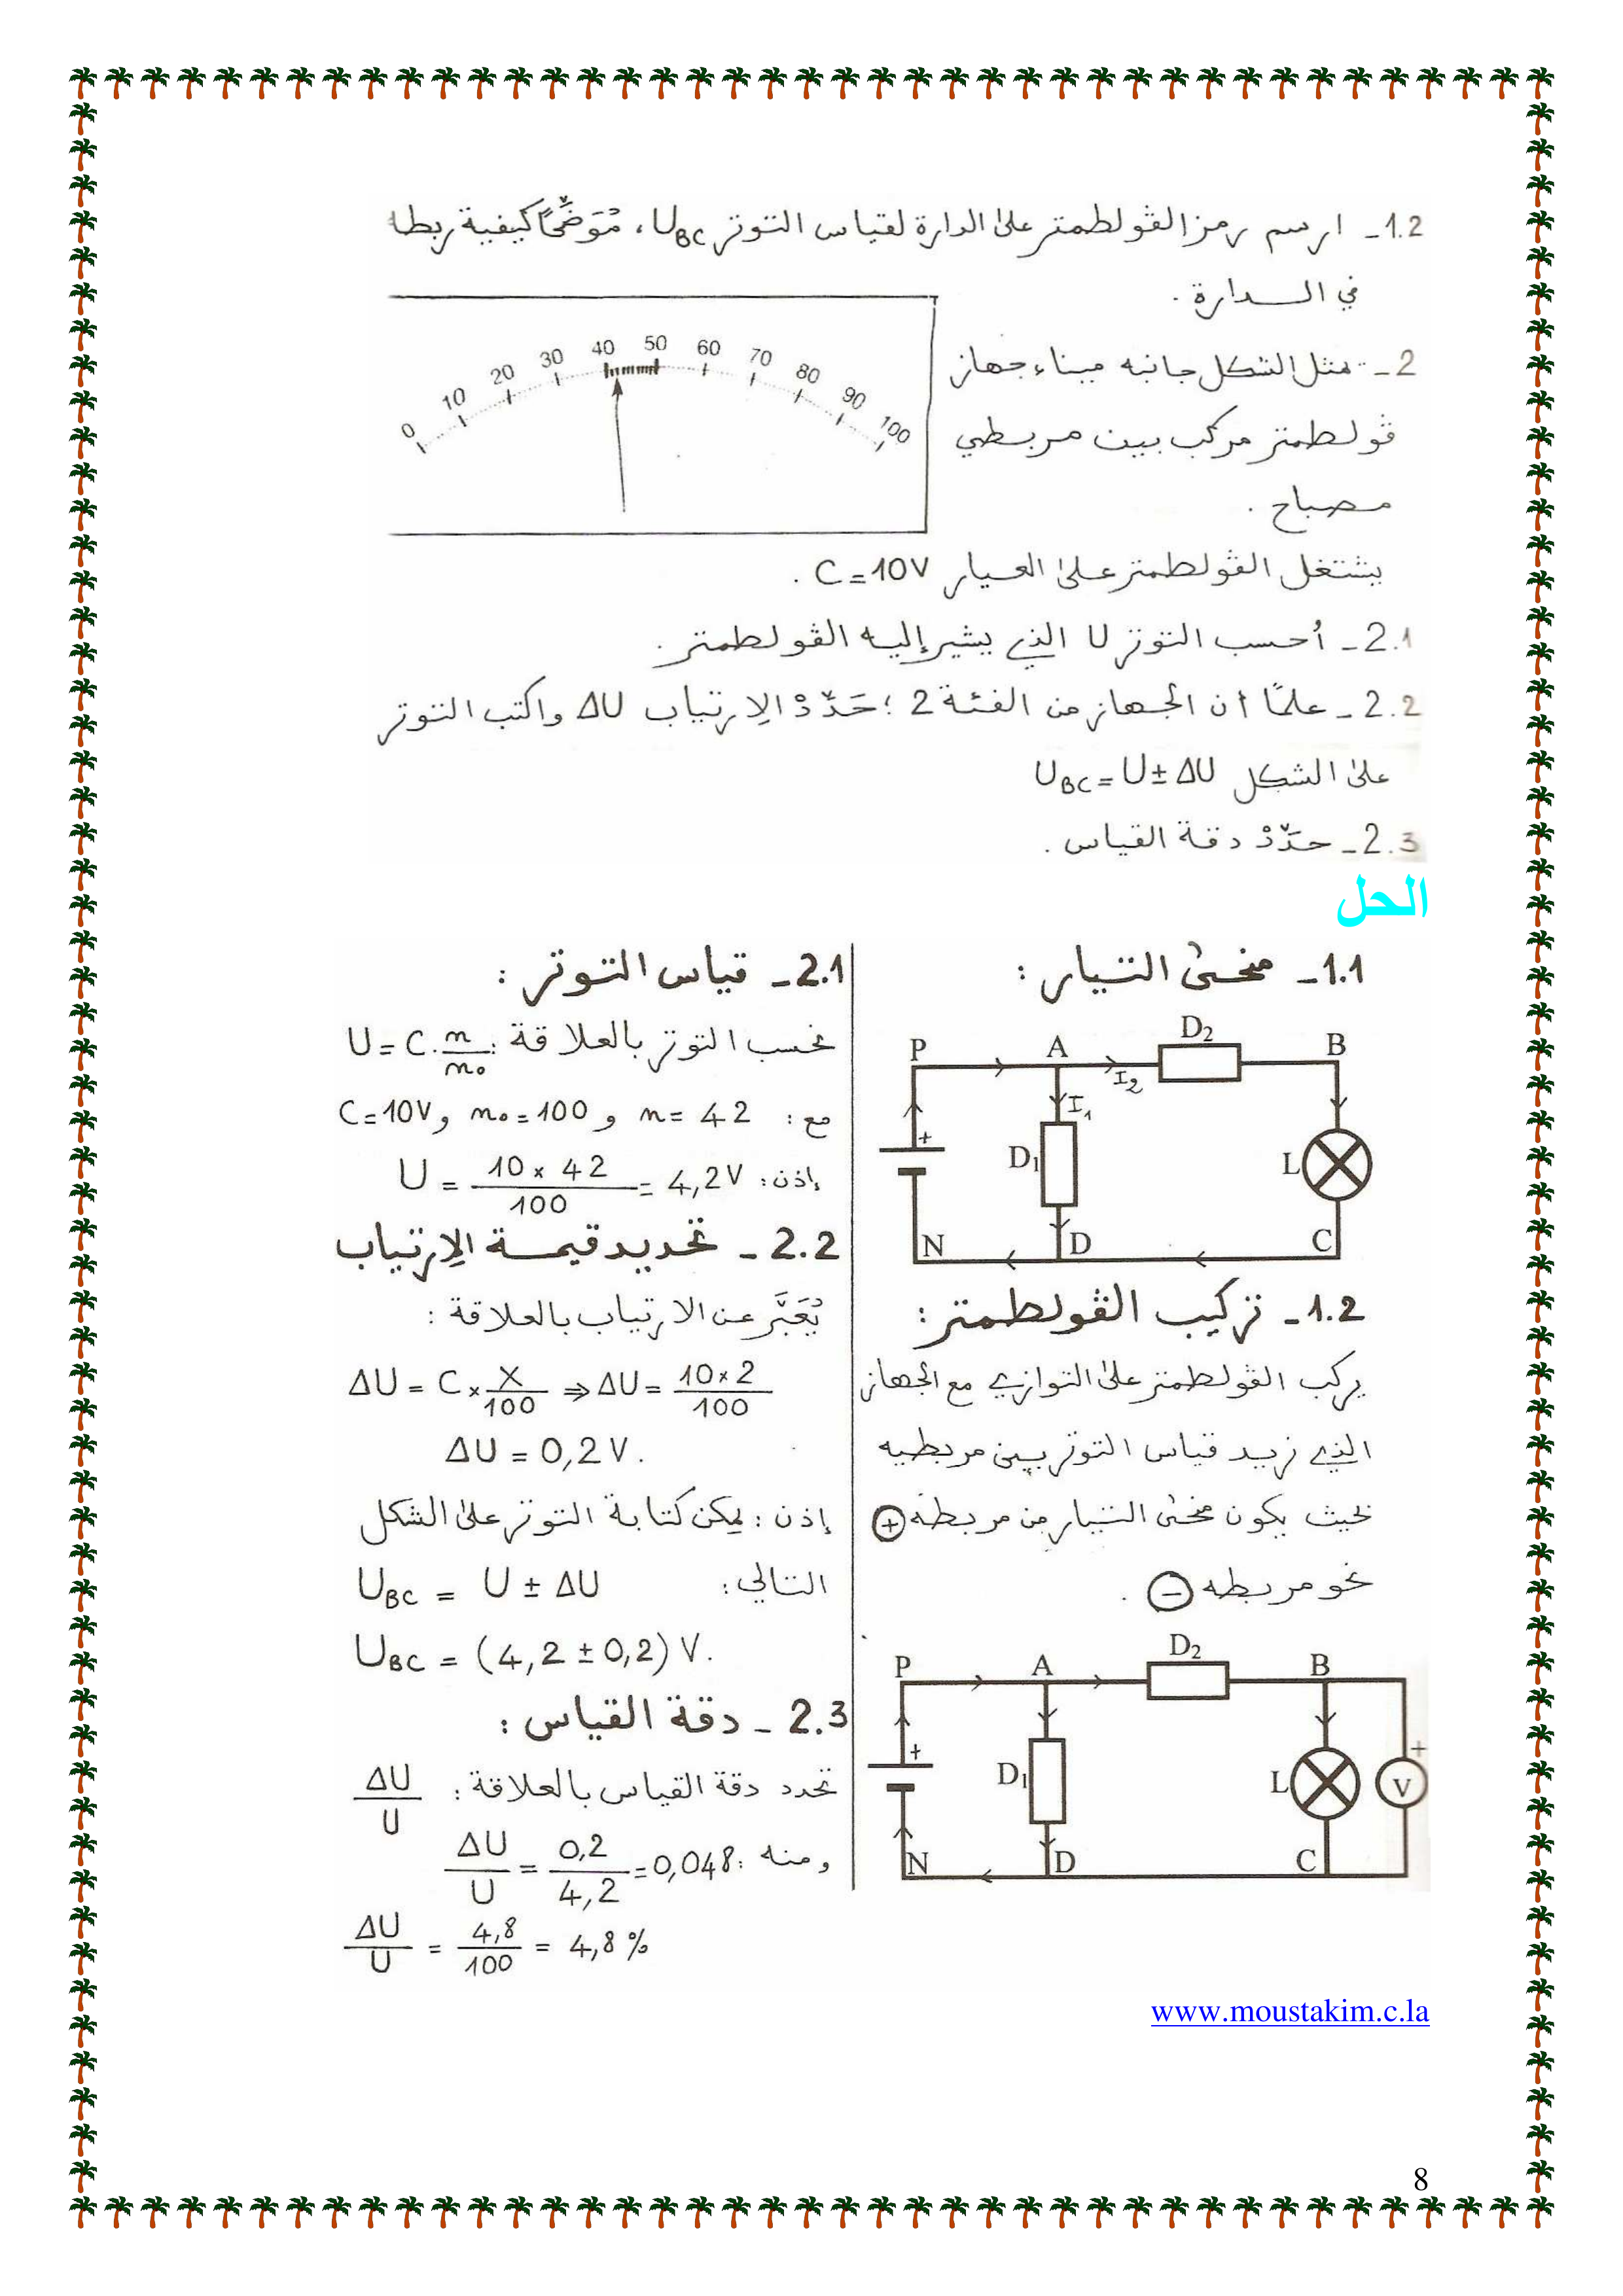 1.2 ـ ارسم رمز الڤولطمتر على الدارة لقياس التوتر UBC ، مُوَضِّحًا كيفية ربطه
في الـدارة .
0 10 20 30 40 50 60 70 80 90 100
2 ـ يمثل الشكل جانبه ميناء جهاز
ڤولطمتر مركب بين مربطي
مصباح .
يشتغل الڤولطمتر على العيار C=10V .
2.1 ـ أحسب التوتر U الذي يشير إليه الڤولطمتر .
2.2 ـ علمًا أن الجهاز من الفئة 2 ؛ حَدِّدْ الإرتياب ΔU واكتب التوتر
على الشكل UBC = U ± ΔU
2.3 ـ حدِّدْ دقة القياس .
الحل
1.1 ـ منحى التيار :
P A D2 B
I2
I1
+ D1 L
N D C
1.2 ـ تركيب الڤولطمتر :
يركب الڤولطمتر على التوازي مع الجهاز
الذي نريد قياس التوتر بين مربطيه
بحيث يكون منحى التيار من مربطه +
نحو مربطه − .
P A D2 B
+ D1 L V +
N D C
2.1 ـ قياس التوتر :
نحسب التوتر بالعلاقة : U = C . n/n₀
مع : n = 42 و n₀ = 100 و C = 10V
إذن : U = 10 × 42/100 = 4,2 V
2.2 ـ تحديد قيمة الإرتياب
يُعَبَّر عن الارتياب بالعلاقة :
ΔU = C × X/100 ⇒ ΔU = 10×2/100
ΔU = 0,2 V .
إذن : يمكن كتابة التوتر على الشكل
التالي : UBC = U ± ΔU
UBC = (4,2 ± 0,2) V .
2.3 ـ دقة القياس :
تحدد دقة القياس بالعلاقة : ΔU/U
ومنه : ΔU/U = 0,2/4,2 = 0,048
ΔU/U = 4,8/100 = 4,8 %
www.moustakim.c.la
8